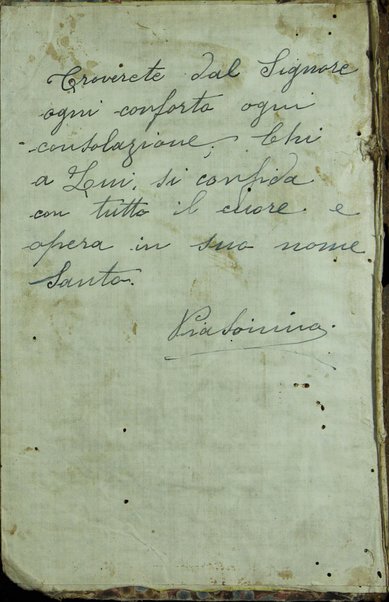 Troverete dal Signore
ogni conforto ogni
consolazione; Chi
a Lui, si confida
con tutto il cuore e
opera in suo nome
Santo.